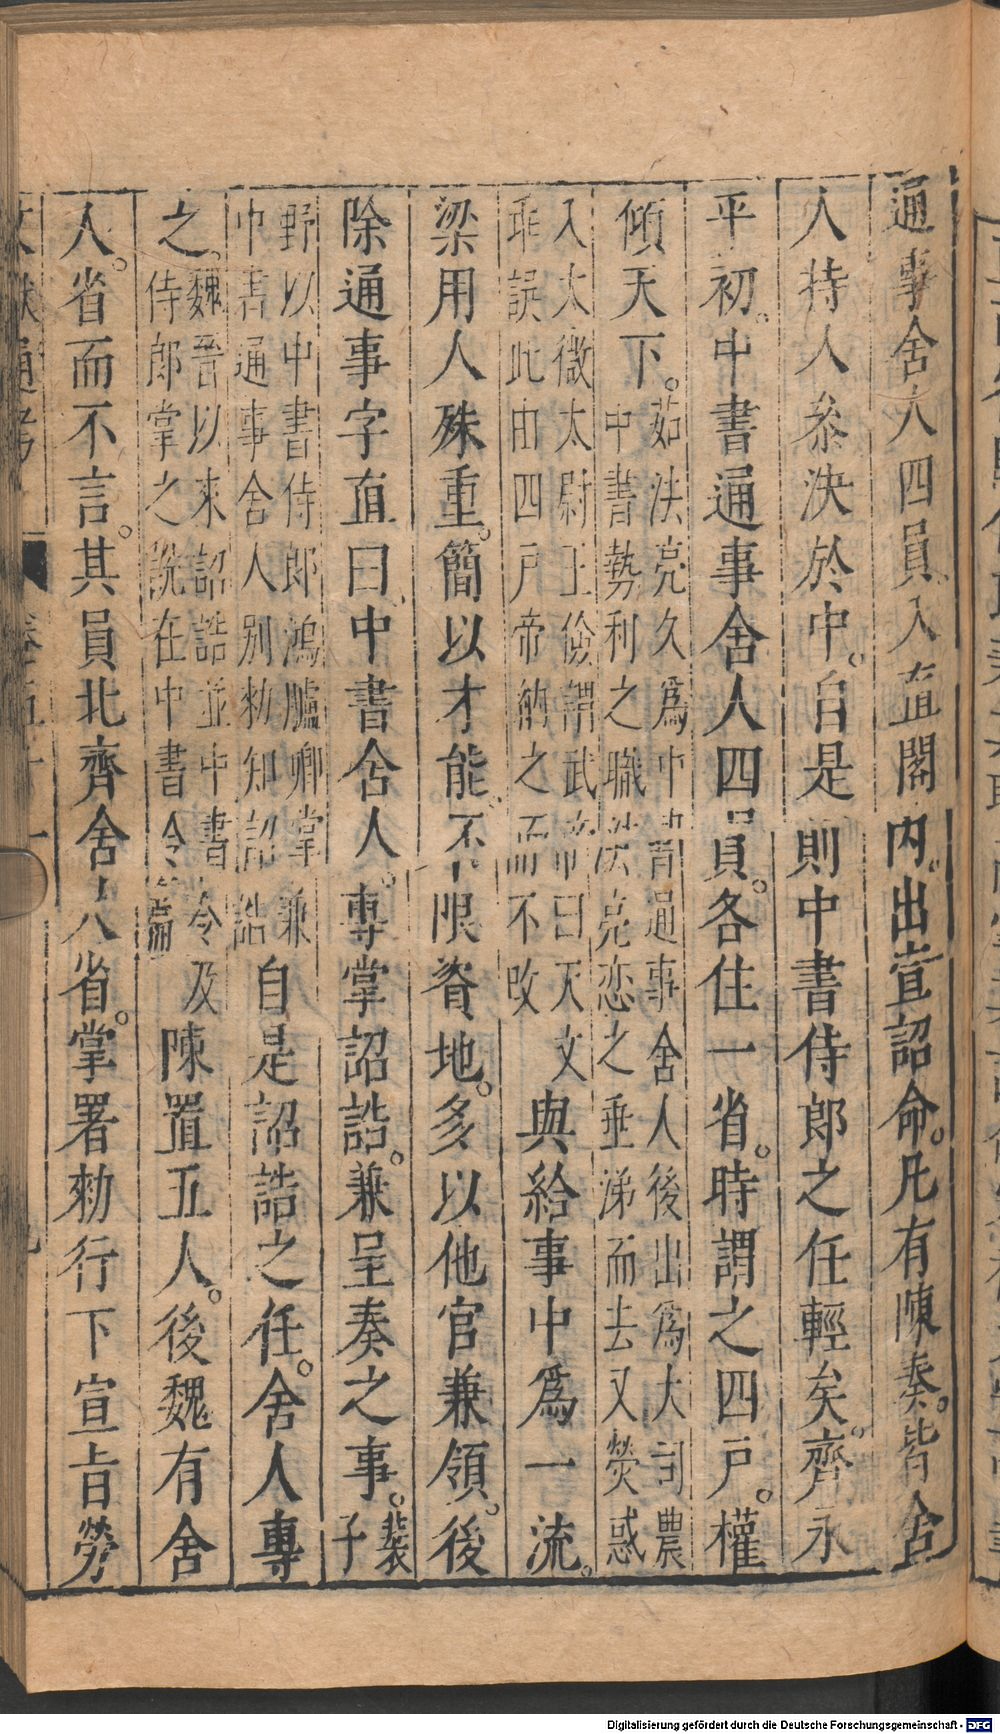 通事舍人四員入直閤內。出宣詔命。凡有陳奏。皆舍
人持人叅決於中。自是則中書侍郎之任輕矣。齊永
平初。中書通事舍人四員。各住一省。時謂之四戶。權
傾天下。茹法亮久為中書通事舍人後出為大司農
中書勢利之職法亮戀之垂涕而去又熒惑
入太微太尉王儉謂武帝曰天文
乖誤此由四戶帝納之而不改
與給事中為一流。
梁用人殊重。簡以才能。不限資地。多以他官兼領。後
除通事字直曰中書舍人。專掌詔誥。兼呈奏之事。裴
子
野以中書侍郎鴻臚卿掌兼
中書通事舍人別勑知詔誥
自是詔誥之任。舍人專
之。魏晉以來詔誥並中書令及
侍郎掌之說在中書令篇
陳置五人。後魏有舍
人。省而不言。其員北齊舍人省。掌署勑行下宣旨勞
文獻通考
Digitalisierung gefördert durch die Deutsche Forschungsgemeinschaft - DFG